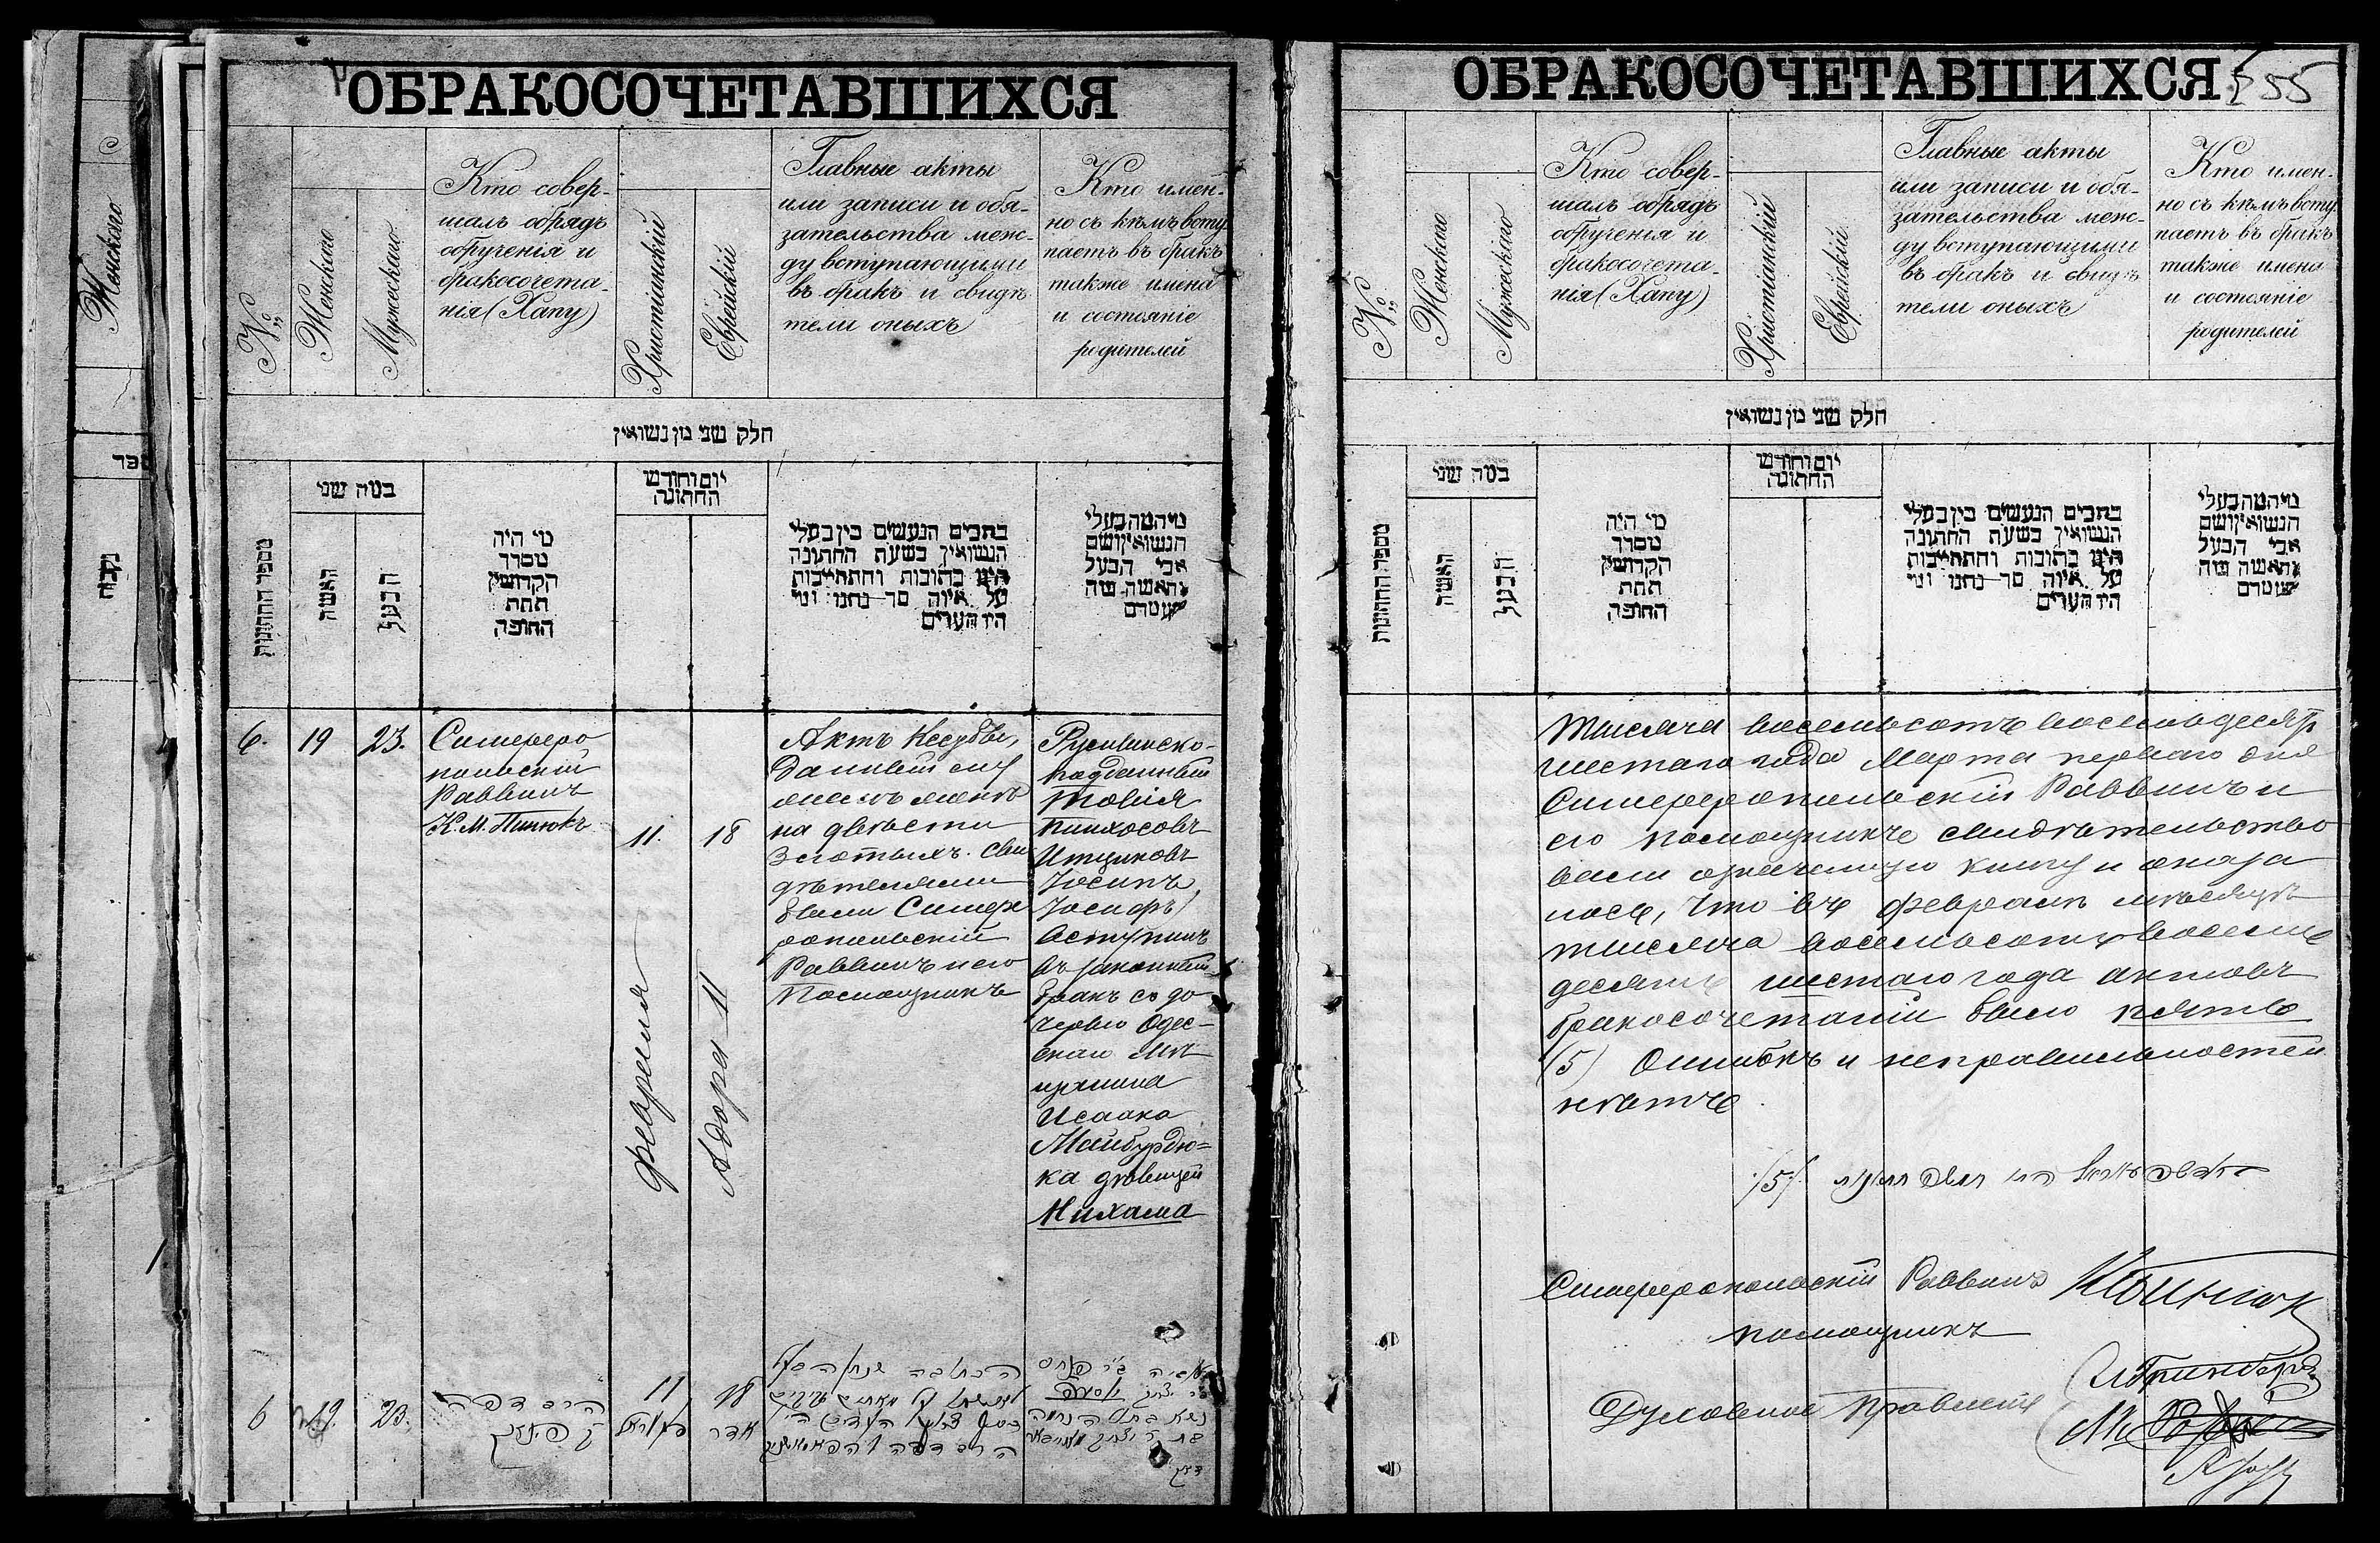 ОБРАКОСОЧЕТАВШИХСЯ
№
Женскаго
Мужескаго
Кто совер-
шалъ обрядъ
обрученія и
бракосочета-
нія (Хапу)
Христианскій
Еврейскій
Главные акты
или записи и обя-
зательства меж-
ду вступающими
въ бракъ и свидѣ
тели оныхъ
Кто имен-
но съ кѣмъ всту
паетъ въ бракъ
также имена
и состояніе
родителей
חלק שני מן נשואין
מספר החתונות
במה שני
האשה
הבעל
מי היה
מסדר
הקדושין
תחת
החופה
יום וחודש
החתונה
כתבים הנעשים בין בעלי
הנשואין בשעת החתונה
היינו כתובות והתחייבות
על איזה סך נתנו ומי
היו העדים
מי המה בעלי
הנשואין ושם
אבי הבעל
והאשה ומה
מעמדם
6.
19
23.
Симферо
польскій
Раввинъ
К. М. Пинюкъ
11.
Февраля
18
Адора II
Актъ Кесубы,
данный ему
на двѣсти
Злотыхъ. Сви
дѣтелями
были Симфе
ропольскій
Раввинъ и его
Помощникъ
Румынско-
подданный
Товія
Пинхосовъ
Ицковъ
Іосипъ,
(Іосифъ)
вступилъ
въ законный
бракъ съ до-
черью Одес-
скаго мѣ
щанина
Исаака
Майбурдю-
ка дѣвицей
Нихама
6
19.
23.
11
18
אדר
Женскаго
ОБРАКОСОЧЕТАВШИХСЯ
55
№
Женскаго
Мужескаго
Кто совер-
шалъ обрядъ
обрученія и
бракосочета-
нія (Хапу)
Христіанскій
Еврейскій
Главные акты
или записи и обя-
зательства меж-
ду вступающими
въ бракъ и свидѣ
тели оныхъ
Кто имен-
но съ кѣмъ всту
паетъ въ бракъ
также имена
и состояніе
родителей
חלק שני מן נשואין
מספר החתונות
במה שני
האשה
הבעל
מי היה
מסדר
הקדושין
תחת
החופה
יום וחודש
החתונה
כתבים הנעשים בין בעלי
הנשואין בשעת החתונה
היינו כתובות והתחייבות
על איזה סך נתנו ומי
היו העדים
מי המה בעלי
הנשואין ושם
אבי הבעל
והאשה ומה
מעמדם
Тысяча восемьсотъ восемьдесятъ
шестаго года Марта перваго дня
Симферопольскій Раввинъ и
его помощникъ свидѣтельство
вали означенную книгу и оказа
лось, что въ Февралѣ мѣсяцѣ
тысяча восемьсотъ восемь
десятъ шестаго года актовъ
бракосочетаній было пять
(5) Ошибокъ и неправильностей
нѣтъ.
/5/.
Симферопольскій Раввинъ КПинюк
помощникъ
Гринберг
Духовное Правленіе